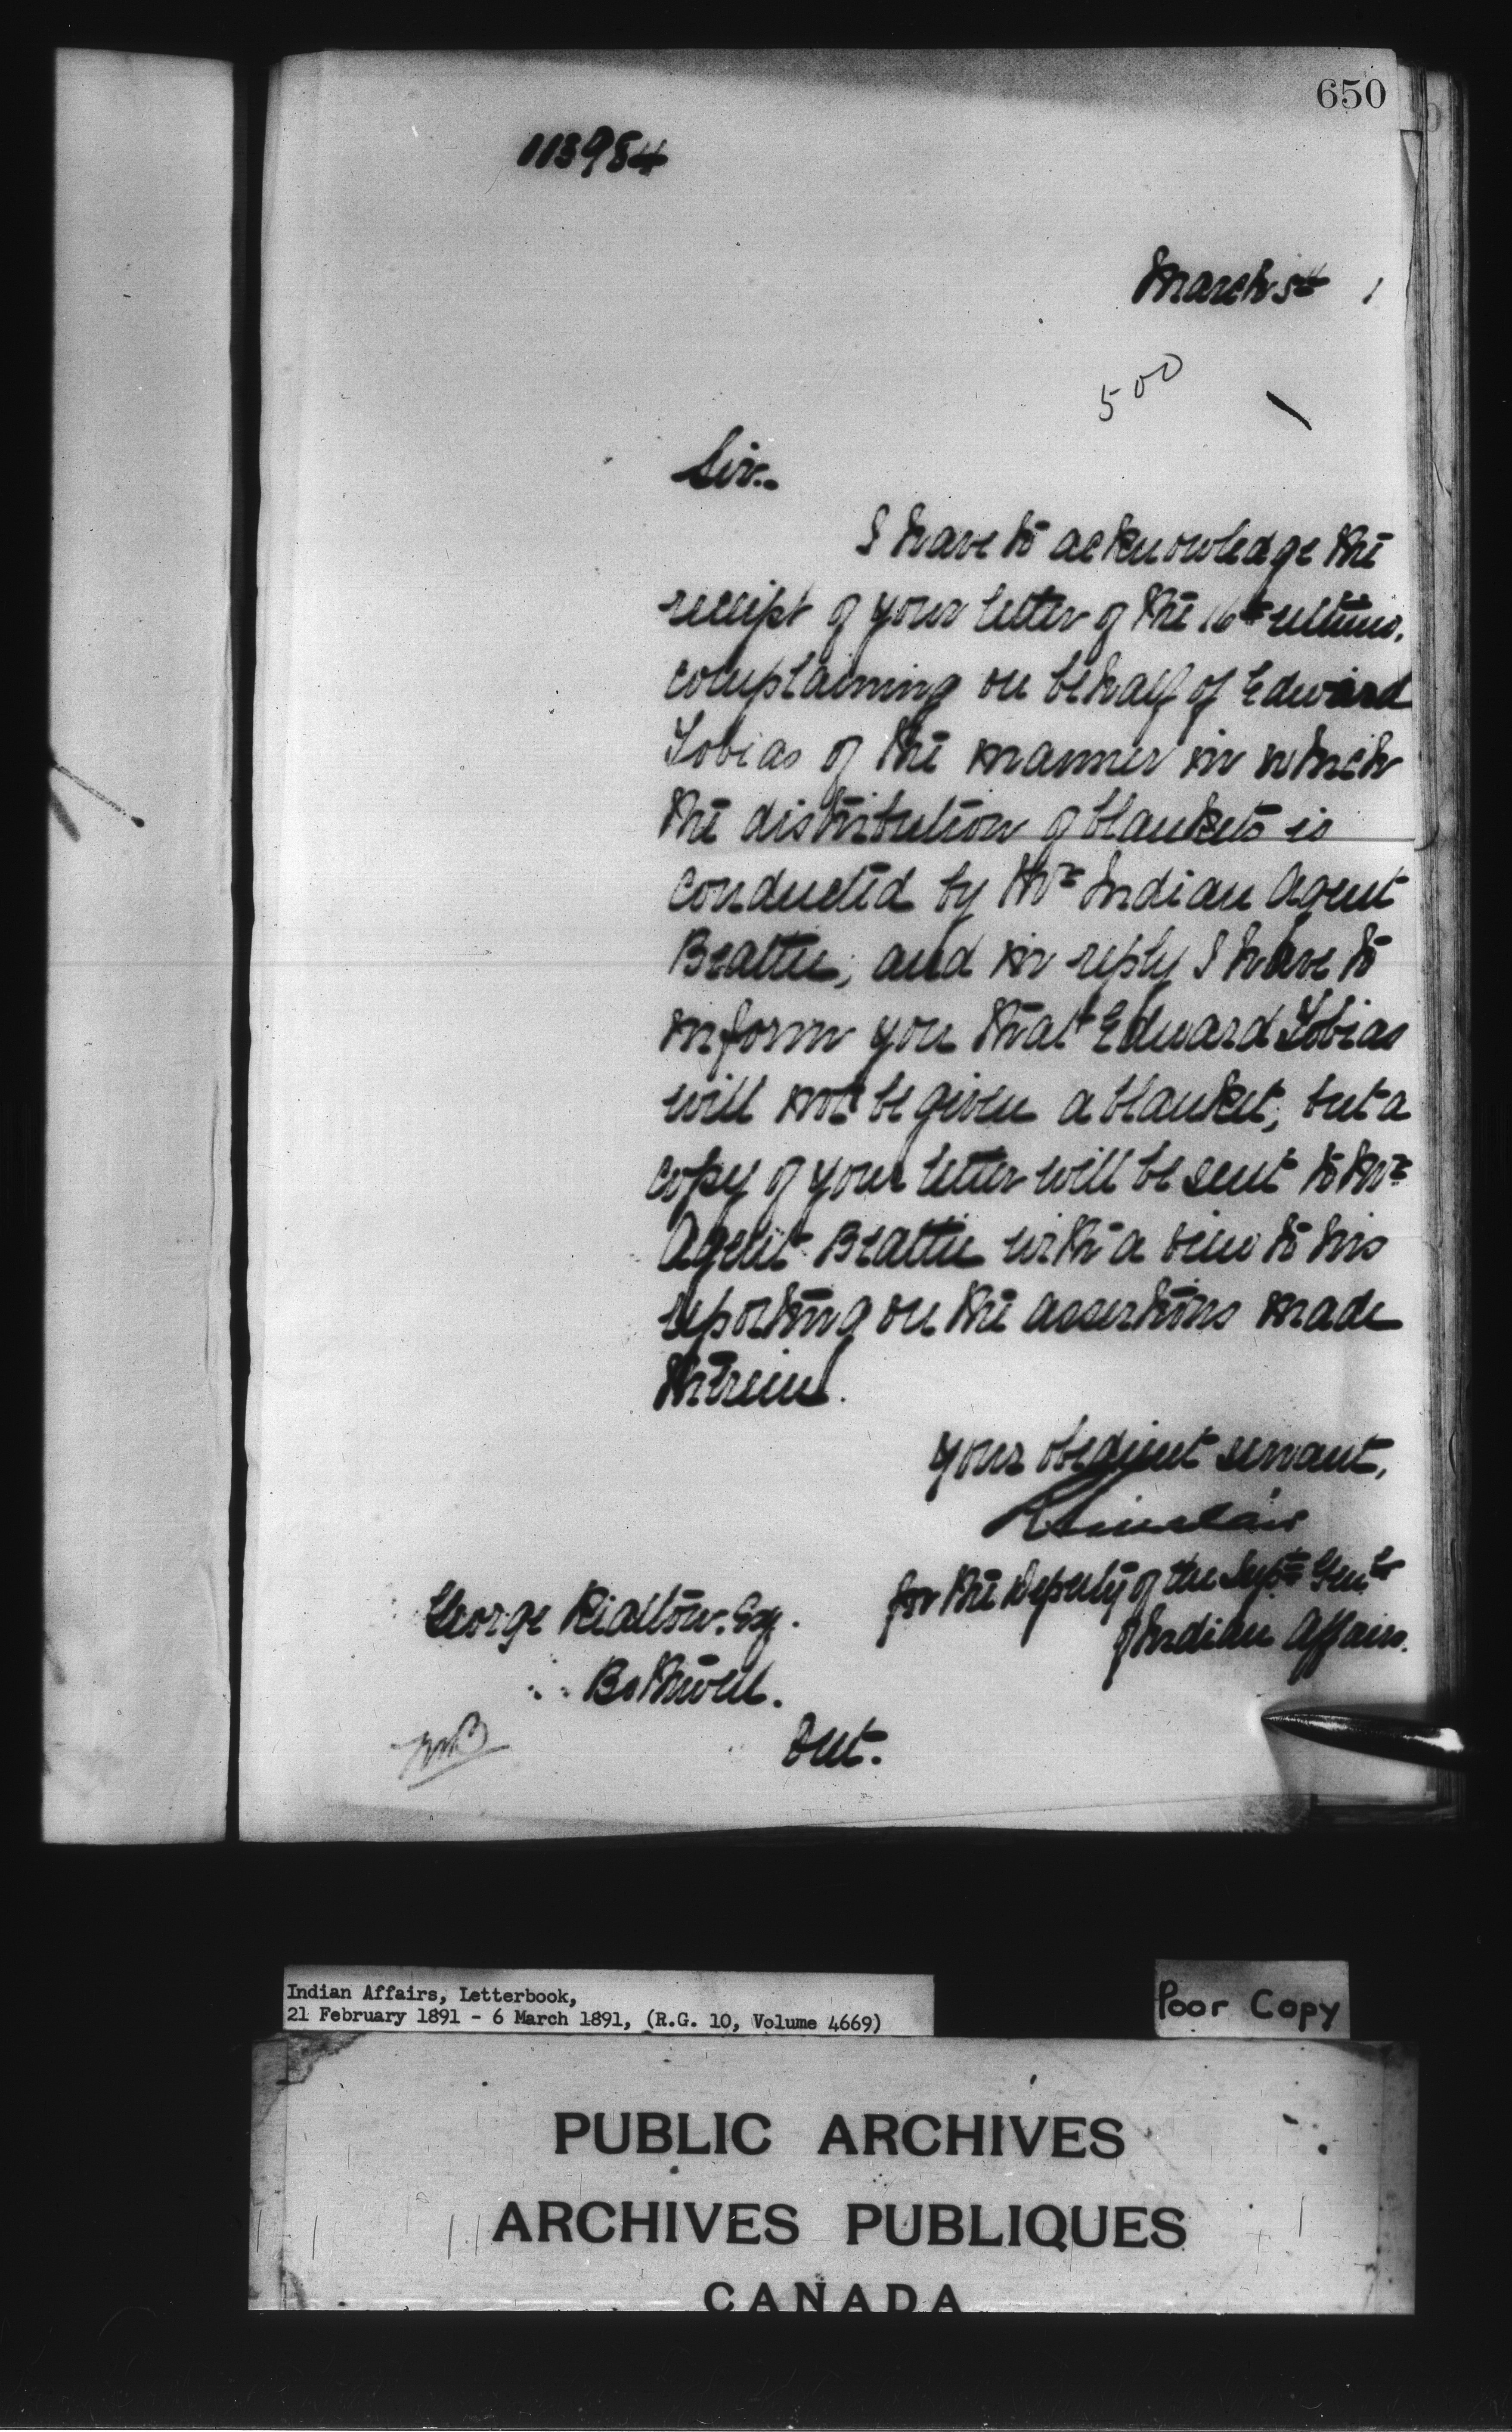 650
113984
March 5th 1
500
Sir..
I have to acknowledge the
receipt of your letter of the 16th ultimo,
complaining on behalf of Edward
Tobias of the manner in which
the distribution of blankets is
conducted by Mr Indian Agent
Beattie, and in reply I have to
inform you that Edward Tobias
will not be given a blanket, but a
copy of your letter will be sent to Mr
Agent Beattie with a view to his
reporting on the assertions made
therein.
Your obedient servant,
Sinclair
for the Deputy of the Supt Genl
of Indian Affairs.
George Esq.
Bothwell.
Ont.
Indian Affairs, Letterbook,
21 February 1891 - 6 March 1891, (R.G. 10, Volume 4669)
Poor Copy
PUBLIC ARCHIVES
ARCHIVES PUBLIQUES
CANADA